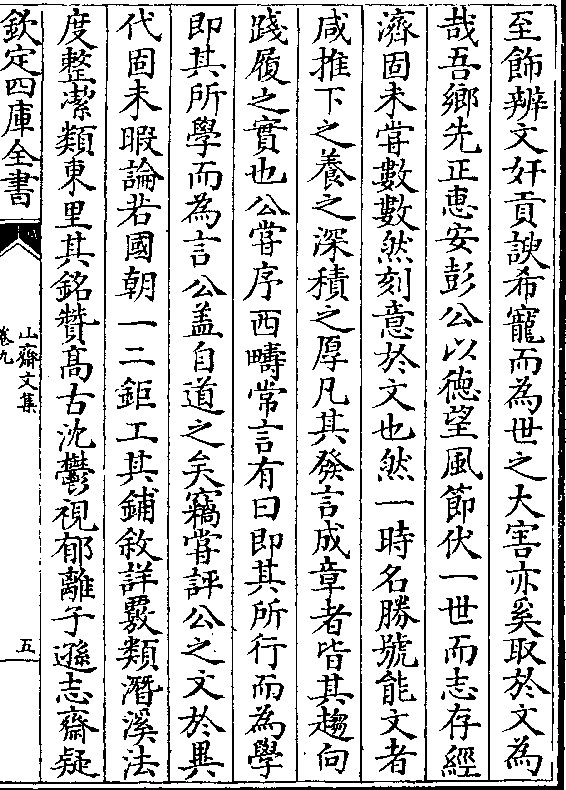 至飾辨文奸貢諛希寵而為世之大害亦奚取於文為
哉吾鄉先正惠安彭公以德望風節伏一世而志存經
濟固未嘗數數然刻意於文也然一時名勝號能文者
咸推下之養之深積之厚凡其發言成章者皆其趨向
踐履之實也公嘗序西疇常言有曰即其所行而為學
即其所學而為言公盖自道之矣竊嘗評公之文於異
代固未暇論若國朝一二鉅工其鋪敘詳覈類潛溪法
度整潔類東里其銘贊高古沈鬱視郁離子遜志齋疑
欽定四庫全書
山齋文集
卷九
五